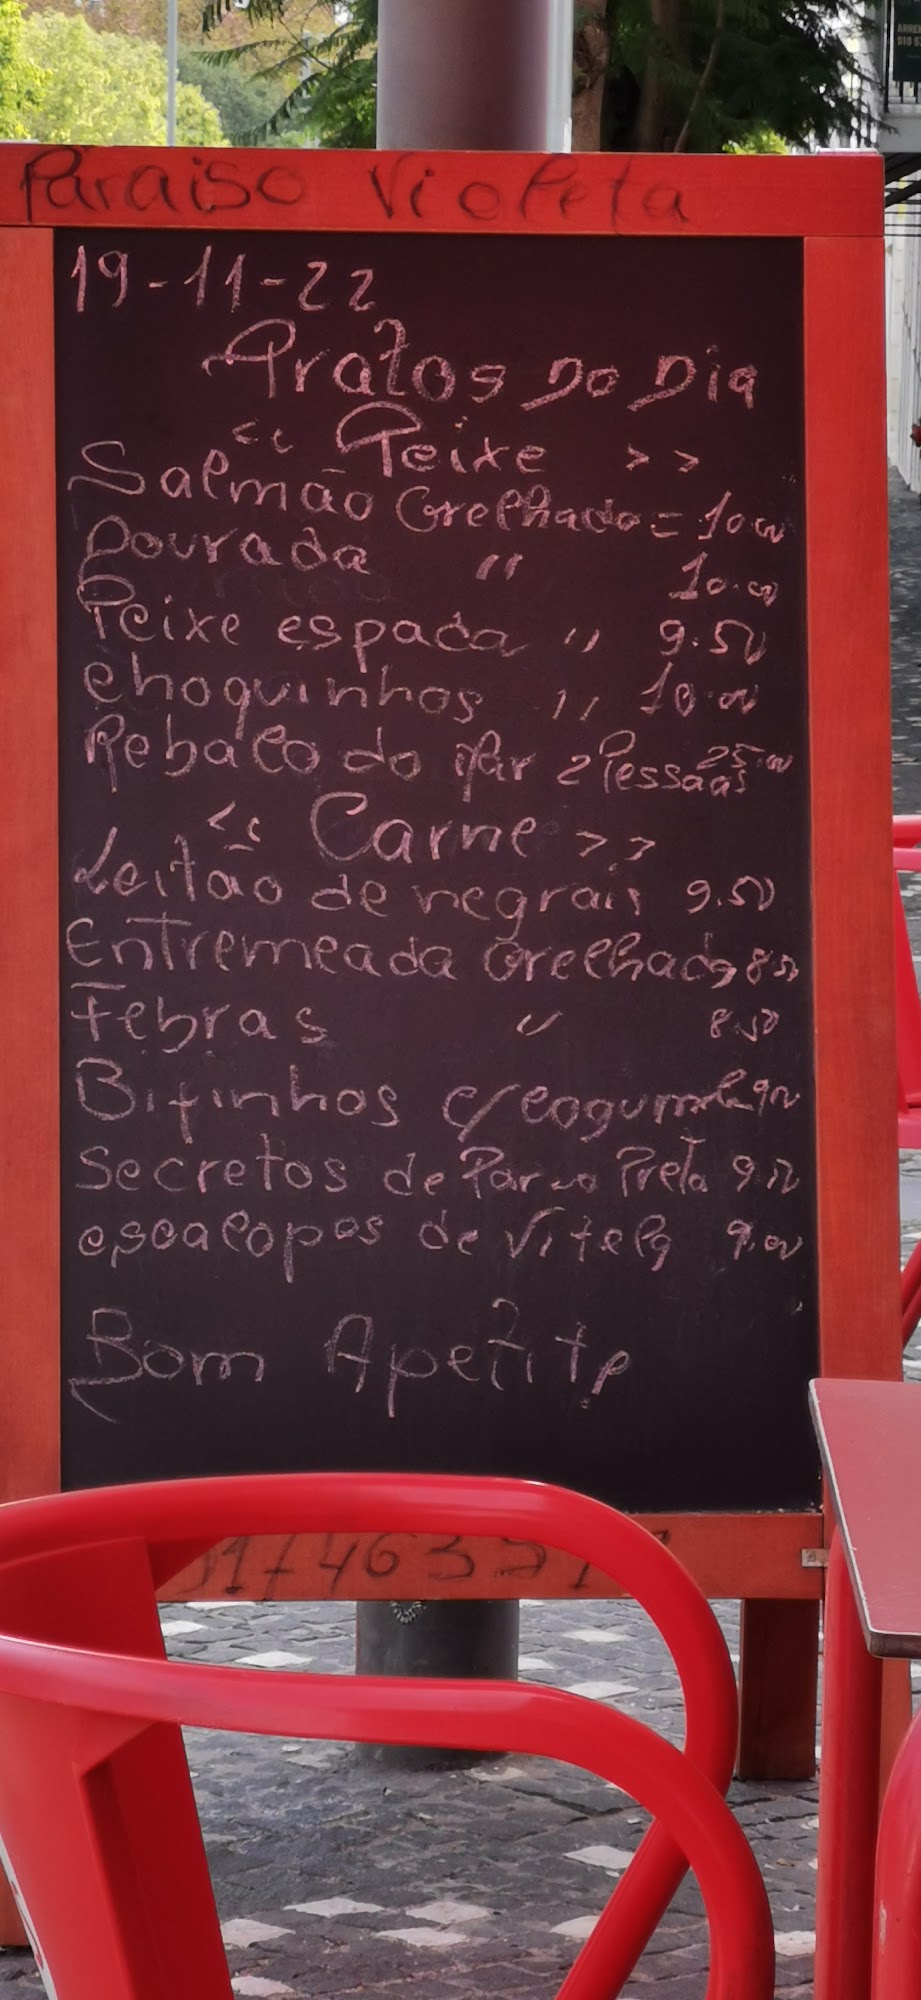 Paraiso Violeta
19-11-22
Pratos Do Dia
<< Peixe >>
Salmão Grelhado = 10.00
Dourada " 10.00
Peixe espada " 9.50
choquinhos " 10.00
Robalo do Mar 2 Pessoas 25.00
<< Carne >>
Leitão de negrais 9.50
Entremeada Grelhada 8.50
Febras " 8.50
Bifinhos c/ cogumel 9.00
Secretos de Porco Preto 9.50
escalopes de Vitela 9.00
Bom Apetite